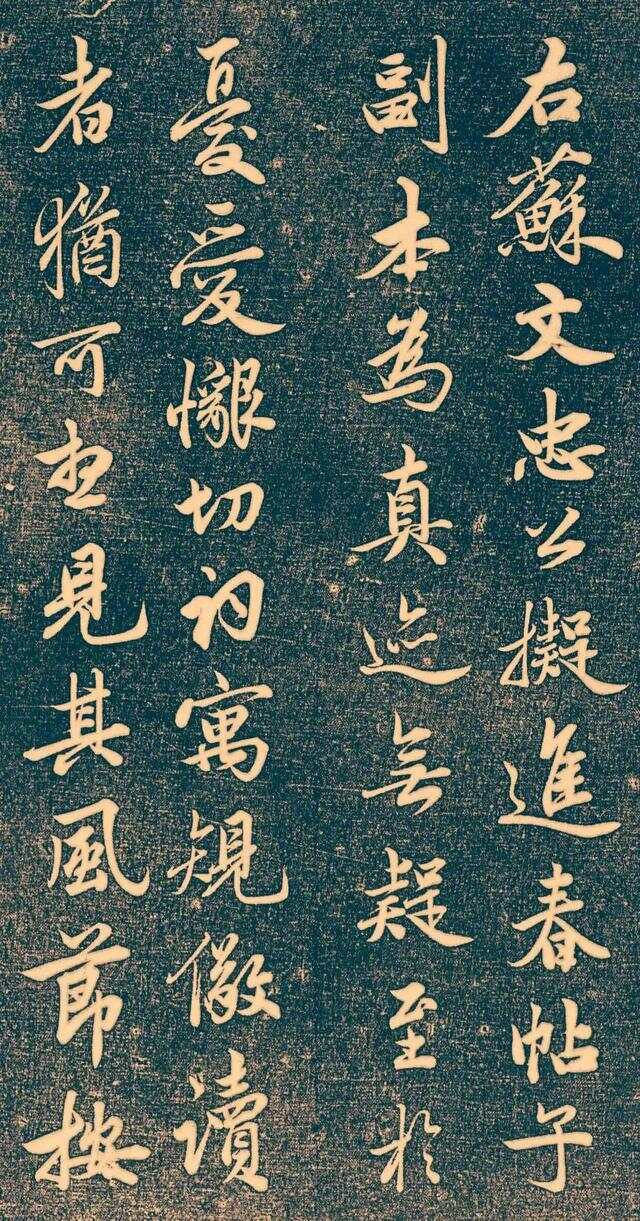 右蘇文忠公擬進春帖子
副本為真迹無疑至於
憂愛懇切詞寓規儆讀
者猶可想見其風節按